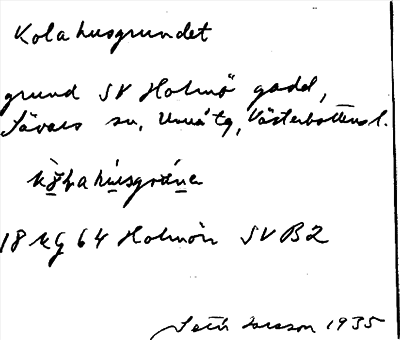 Kolahusgrundet
grund SV Holmö gadd,
Sävars sn, Umeå tg, Västerbottens l.
18 Kg 64 Holmön SV B2
1935